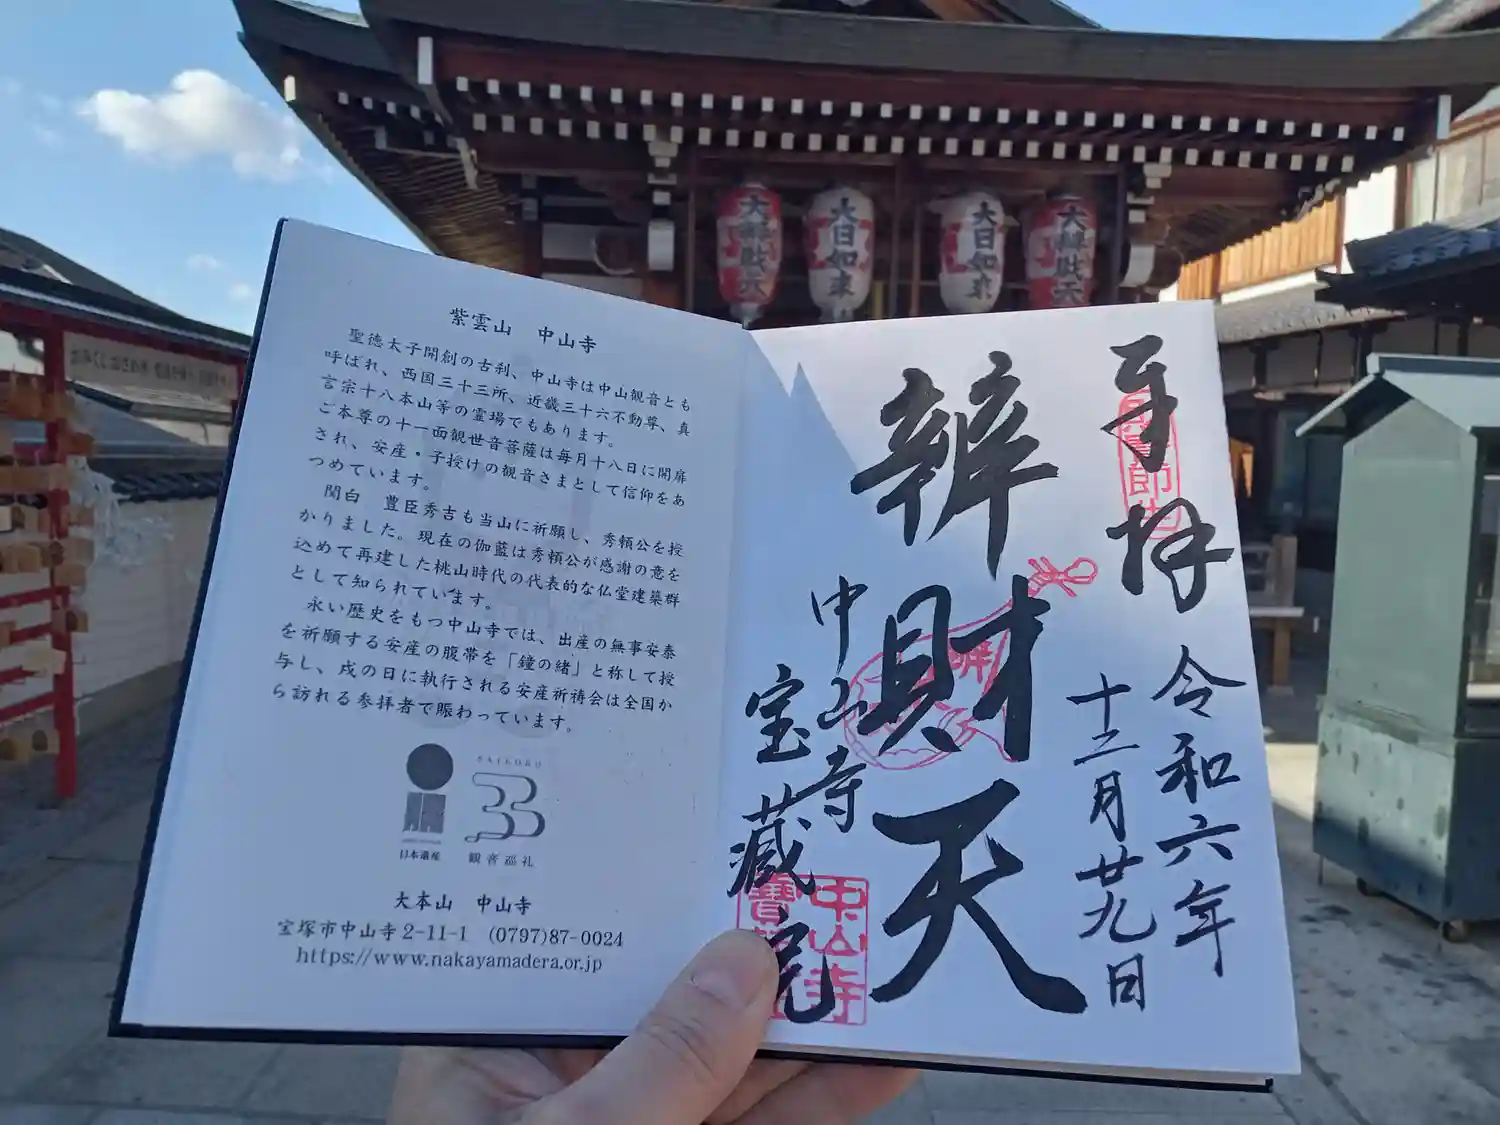 紫雲山　中山寺
聖徳太子開創の古刹、中山寺は中山観音とも
呼ばれ、西国三十三所、近畿三十六不動尊、真
言宗十八本山等の霊場でもあります。
ご本尊の十一面観世音菩薩は毎月十八日に開扉
され、安産・子授けの観音さまとして信仰をあ
つめています。
関白　豊臣秀吉も当山に祈願し、秀頼公を授
かりました。現在の伽藍は秀頼公が感謝の意を
込めて再建した桃山時代の代表的な仏堂建築群
として知られています。
永い歴史をもつ中山寺では、出産の無事安泰
を祈願する安産の腹帯を「鐘の緒」と称して授
与し、戌の日に執行される安産祈祷会は全国か
ら訪れる参拝者で賑わっています。
日本遺産
SAIKOKU
33
観音巡礼
大本山　中山寺
宝塚市中山寺2-11-1　(0797)87-0024
https://www.nakayamadera.or.jp
奉拝
令和六年
十二月廿九日
辨財天
中山寺
宝蔵院
中山寺
大辨財天
大日如来
大日如来
大辨財天